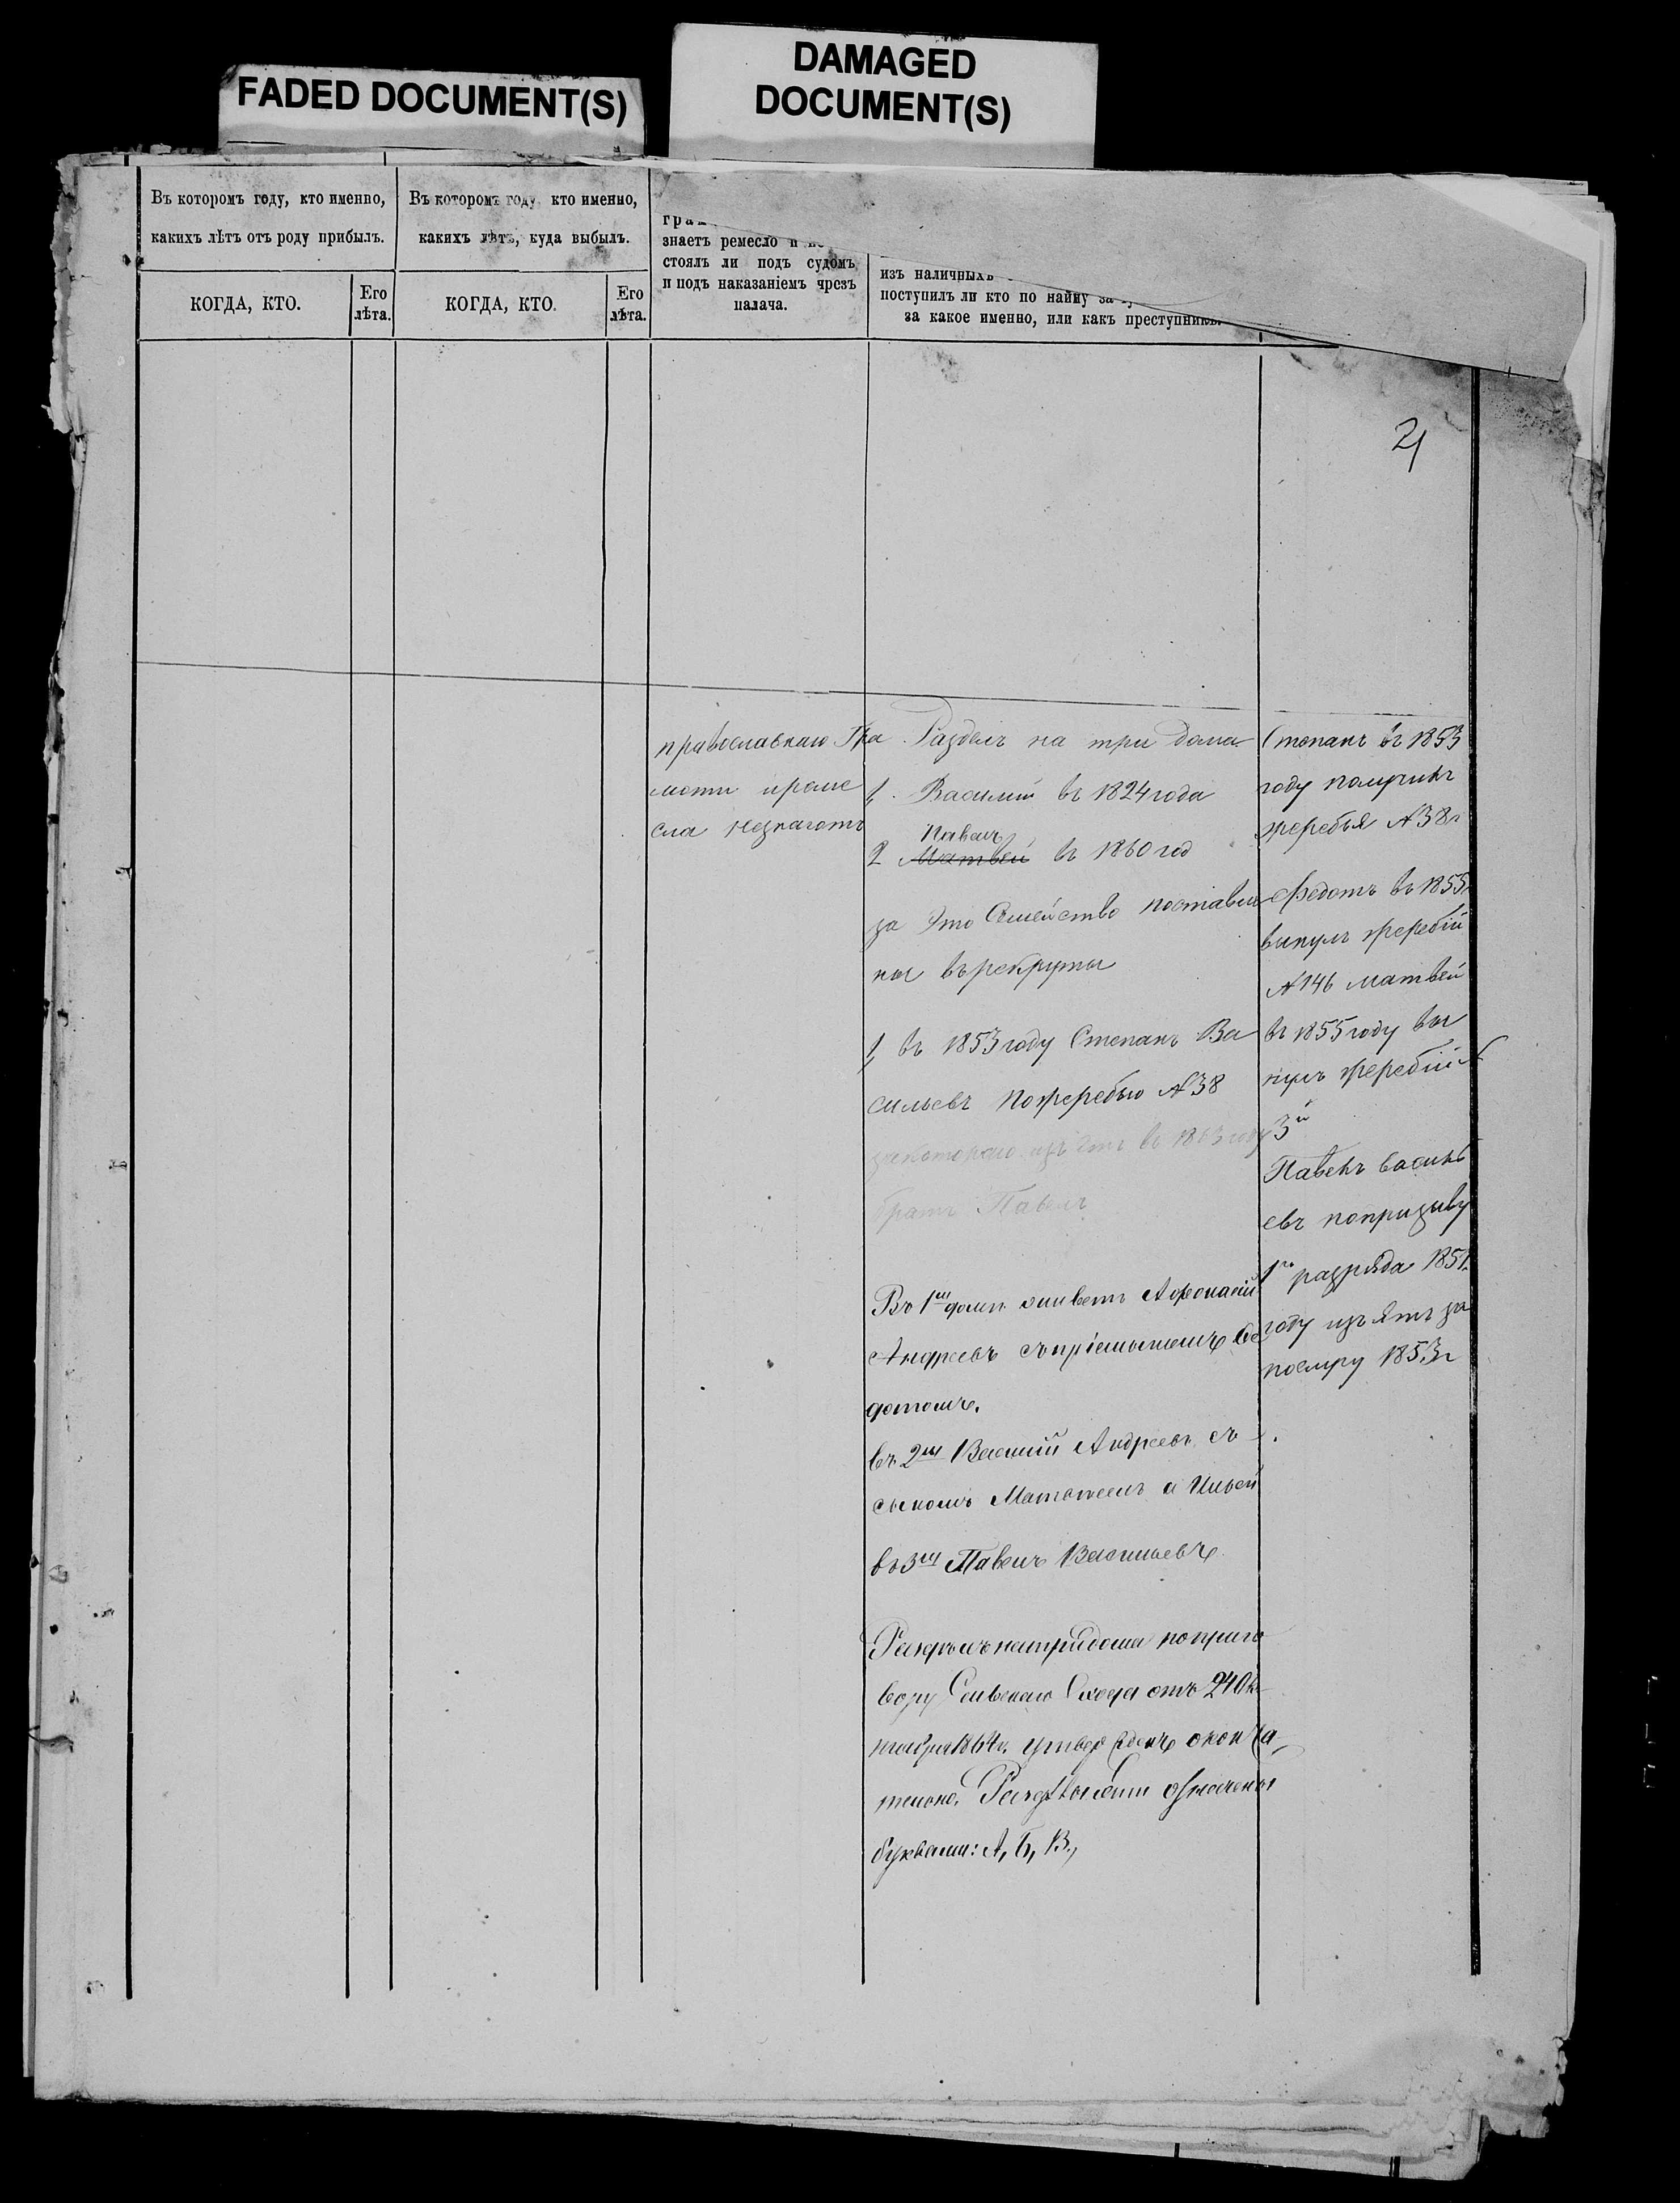 FADED DOCUMENT(S)
DAMAGED
DOCUMENT(S)
Въ которомъ году, кто именно,
какихъ лѣтъ отъ роду прибылъ.
КОГДА, КТО.
Его
лѣта.
Въ которомъ году, кто именно,
какихъ лѣтъ, куда выбылъ.
КОГДА, КТО.
Его
лѣта.
знаетъ ремесло и
стоялъ ли подъ судомъ
и подъ наказаніемъ чрезъ
палача.
изъ наличныхъ
поступилъ ли кто по найму за
за какое именно, или какъ преступникъ.
21
православнаго Гра
моти ироме
сла незнаютъ
Раздѣлъ на три дома
1. Василий въ 1824 года
Павелъ
2 Матвей въ 1860 год
за Это Семейство поставле
ны въ рекруты
1, въ 1853 году Степанъ Ва
сильевъ по жеребью №38
за котораго изъятъ въ 1863 году
братъ Павелъ
Въ 1мъ домѣ живетъ Афонасий
Андреевъ съ приемышемъ Фе
дотомъ.
въ 2мъ Василий Андреевъ съ
сыномъ Матвеемъ и Ильей
въ 3мъ Павелъ Васильевъ
Раздѣлъ на три дома по приго
вору Сельскаго Схода отъ 24 Ок
тября 1864г. утвержденъ оконча
тельно. означены
буквами: А, Б, В.,
Степанъ въ 1853
году получилъ
жеребья №38г
Федотъ въ 1855
вынулъ жеребій
№146 матвей
въ 1855 году вы
нулъ жеребій №
3й
Павелъ василь
евъ по призыву
1го разряда 185
году изъятъ за
1853г